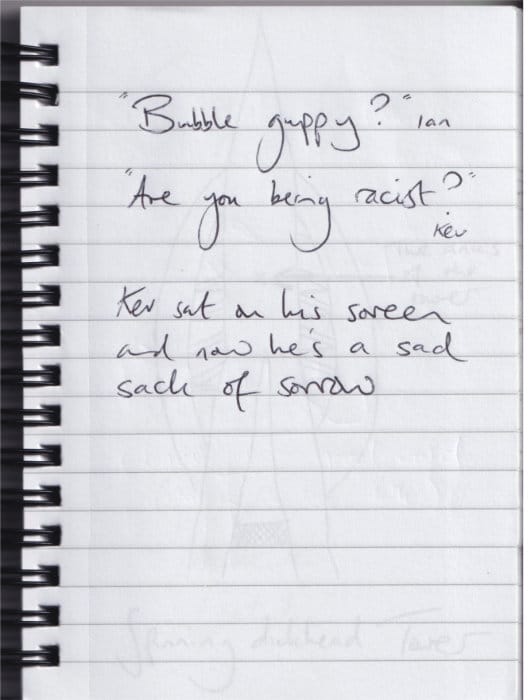 "Bubble guppy?" Ian
"Are you being racist?"
Kev
Kev sat on his screen
and now he's a sad
sack of sorrow
Spinning dickhead Tower